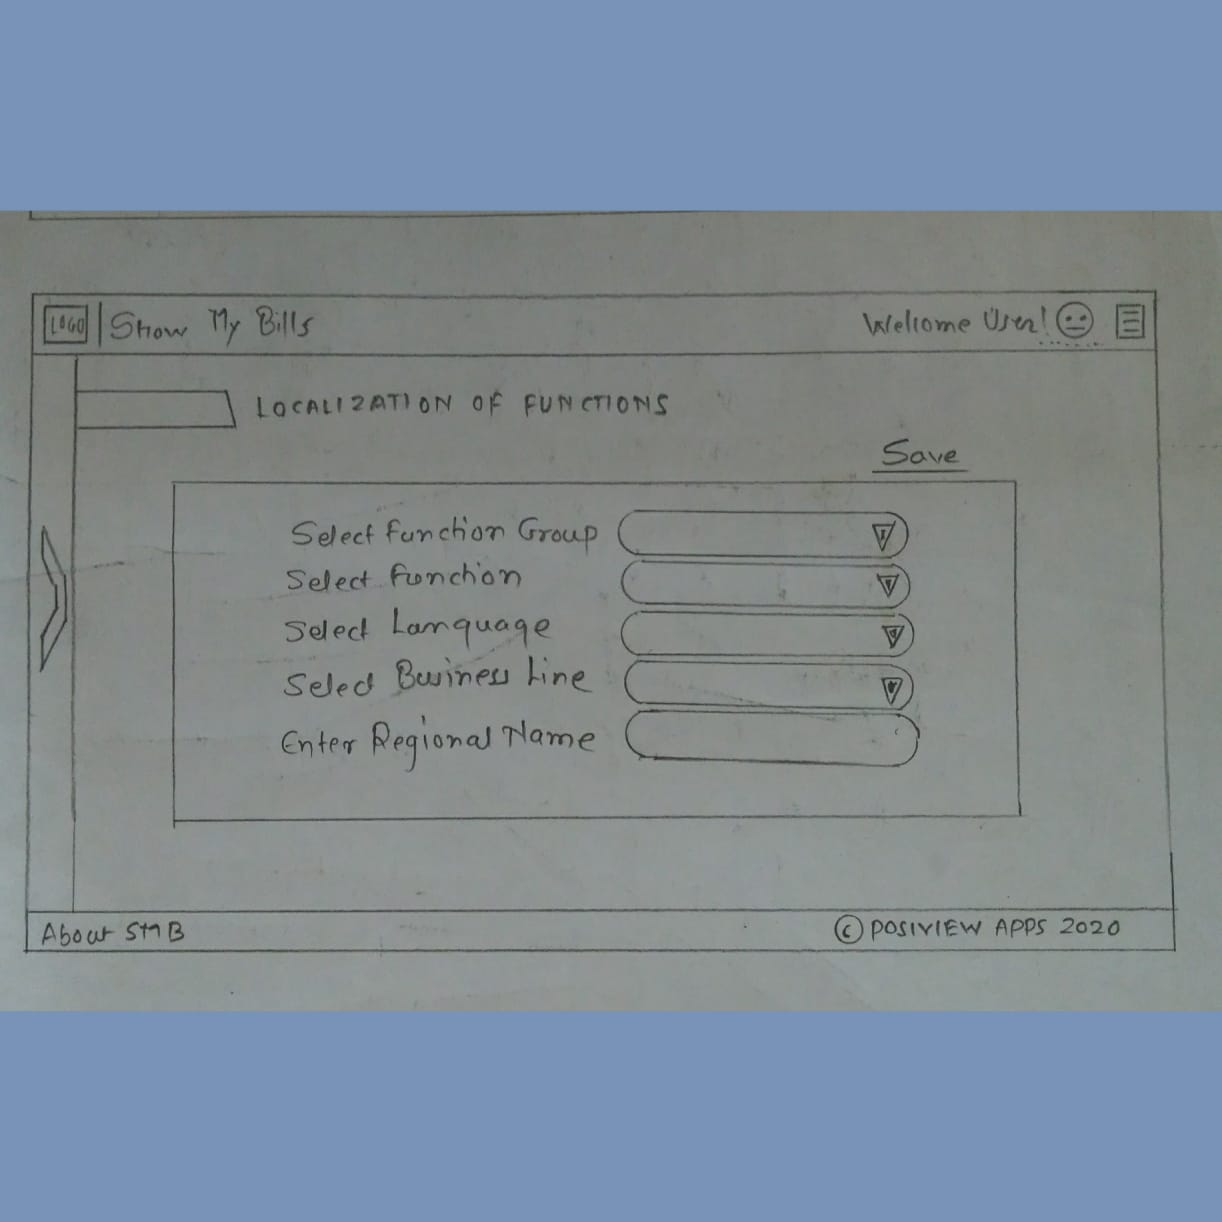 LOGO Show My Bills Welcome User!
LOCALIZATION OF FUNCTIONS
Save
Select Function Group
Select Function
Select Language
Select Business Line
Enter Regional Name
About SMB © POSIVIEW APPS 2020